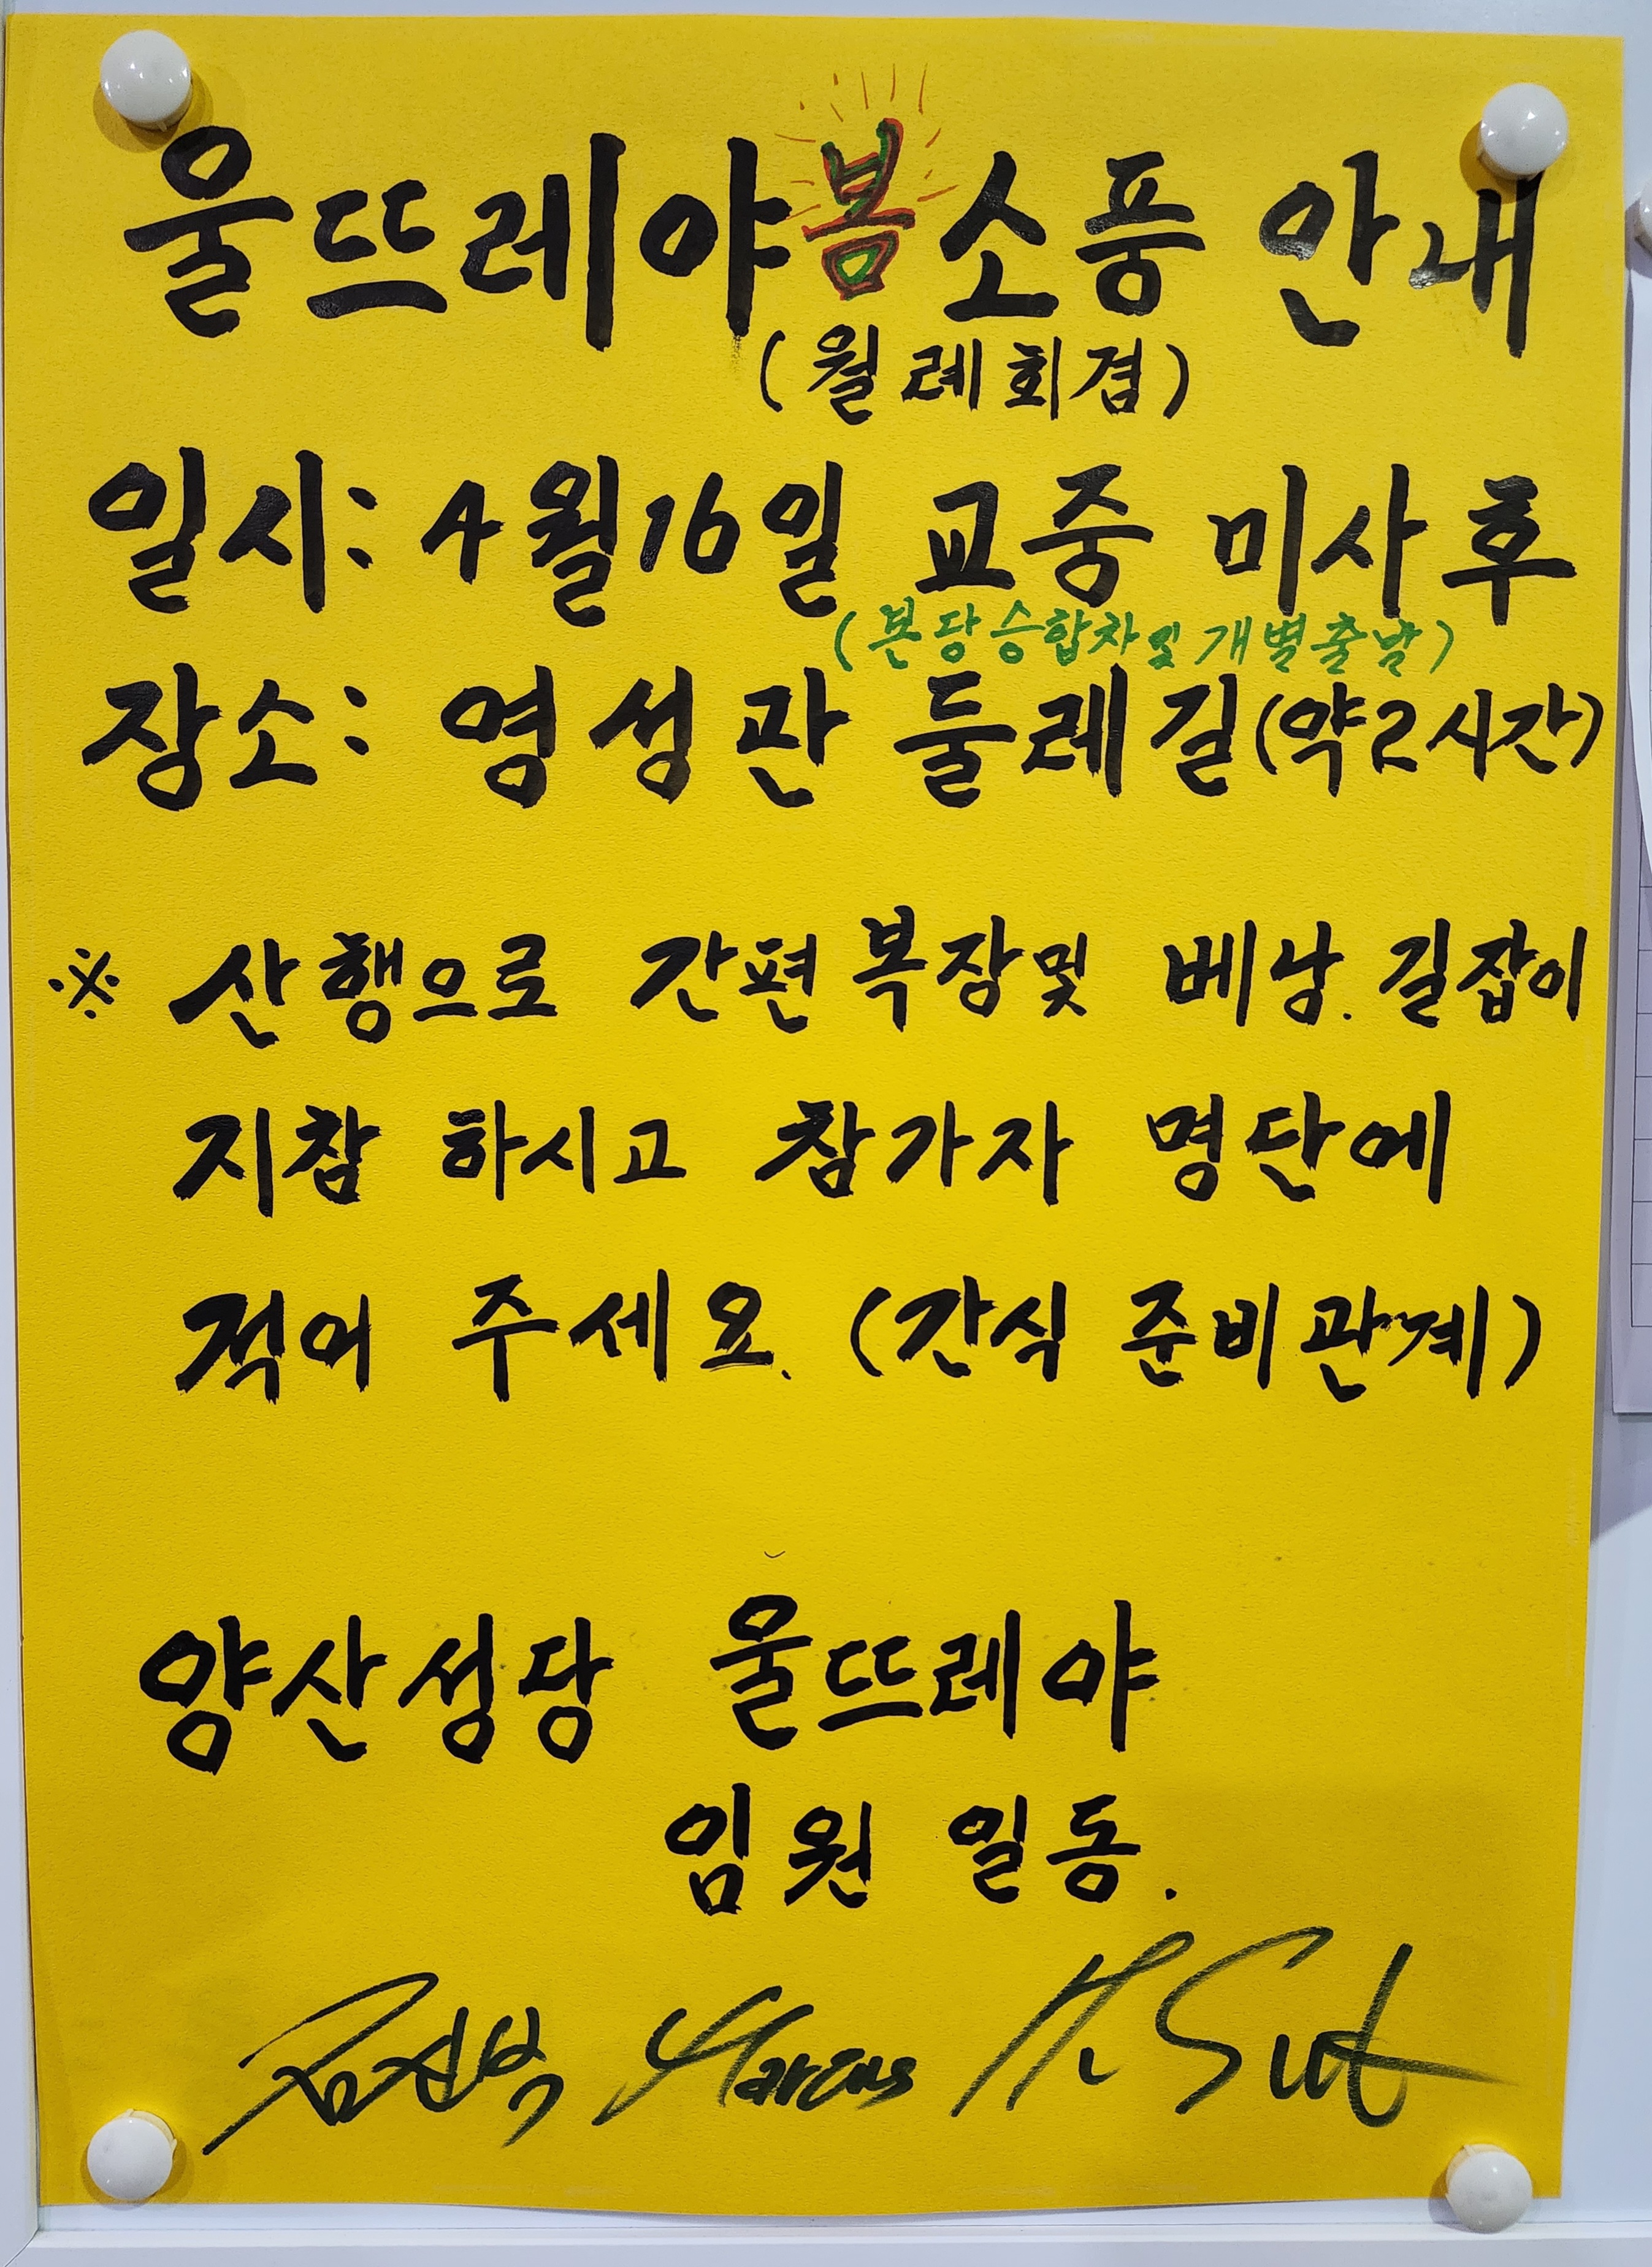 울뜨레야 봄 소풍 안내
(월례회겸)
일시: 4월 16일 교중 미사 후
(본당승합차 및 개별출발)
장소: 영성관 둘레길(약2시간)
※ 산행으로 간편 복장및 베낭. 길잡이
지참 하시고 참가자 명단에
적어 주세요. (간식 준비관계)
양산성당 울뜨레야
임원 일동.
Marcus